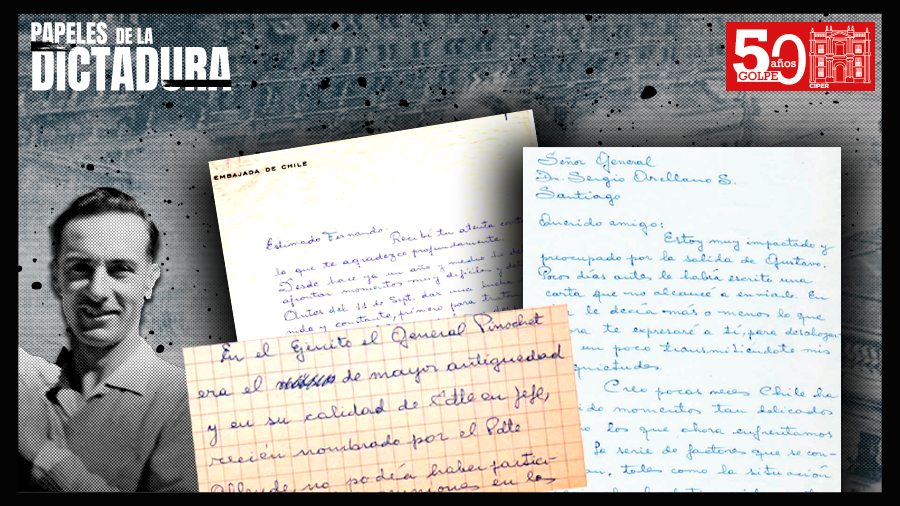 PAPELES DE LA
DICTADURA
50
años
GOLPE
CIPER
EMBAJADA DE CHILE
Estimado Fernando:
Recibí tu atenta
lo que te agradezco profundamente
Desde hace ya un año y medio
afrontar momentos muy difíciles y
Antes del 11 de Sept. dar una lucha
y constante, primero para
En el Ejército el General Pinochet
era el de mayor antiguedad
y en su calidad de Cdte en Jefe,
recién nombrado por el Pdte
Allende, no podía haber partici-
en las
Señor General
Dn. Sergio Arellano S.
Santiago
Querido amigo:
Estoy muy impactado y
preocupado por la salida de Gustavo.
Pocos días antes le había escrito una
carta que no alcancé a enviarle. En
le decía más o menos lo que
te expresaré a tí, para desahogar
un poco transmitiéndote mis
Creo pocas veces Chile ha
momentos tan delicados
los que ahora enfrentamos
la serie de factores que se con-
tales como la situación